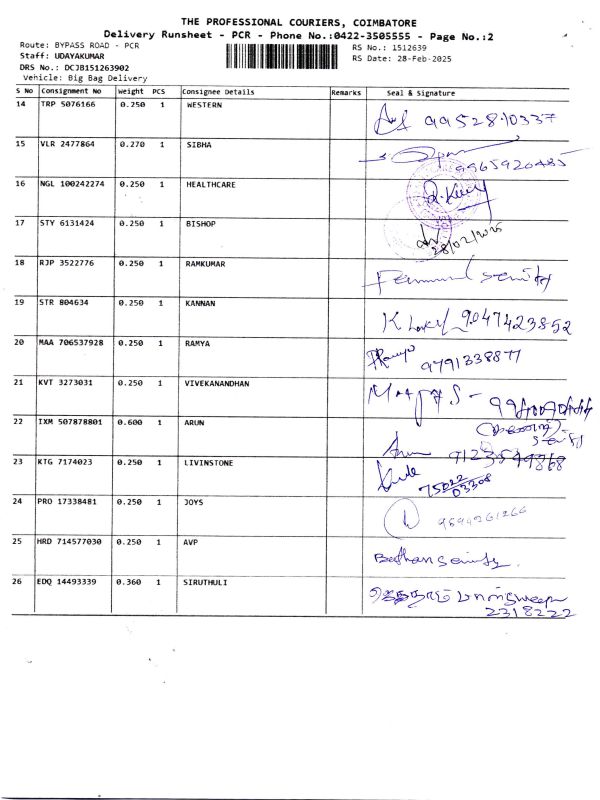 THE PROFESSIONAL COURIERS, COIMBATORE
Delivery Runsheet - PCR - Phone No.:0422-3505555 - Page No.:2
Route: BYPASS ROAD - PCR RS No.: 1512639
Staff: UDAYAKUMAR RS Date: 28-Feb-2025
DRS No.: DCJB151263902
Vehicle: Big Bag Delivery
S No Consignment No Weight PCS Consignee Details Remarks Seal & Signature
14 TRP 5076166 0.250 1 WESTERN
9952810337
15 VLR 2477864 0.270 1 SIBHA
9965920485
16 NGL 100242274 0.250 1 HEALTHCARE
17 STY 6131424 0.250 1 BISHOP
28/02/2025
18 RJP 3522776 0.250 1 RAMKUMAR
19 STR 804634 0.250 1 KANNAN
K 9047423852
20 MAA 706537928 0.250 1 RAMYA
9791338877
21 KVT 3273031 0.250 1 VIVEKANANDHAN
22 IXM 507878801 0.600 1 ARUN
23 KTG 7174023 0.250 1 LIVINSTONE
75022
03308
24 PRO 17338481 0.250 1 JOYS
25 HRD 714577030 0.250 1 AVP
26 EDQ 14493339 0.360 1 SIRUTHULI
2318222